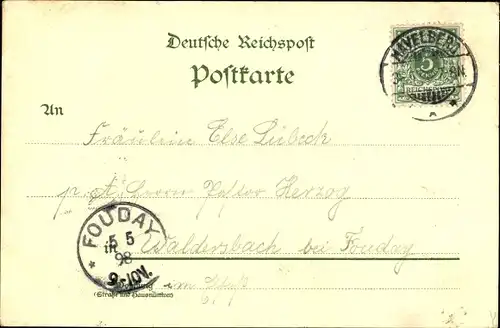 Deutsche Reichspost
Postkarte
HAVELBERG
5
An
Fräulein Else Lübeck
p. A. Herrn Pastor Herzog
FOUDAY
5 5
in
98
9-10V.
Waldersbach bei Fouday
im Elsaß
(Straße und Hausnummer)